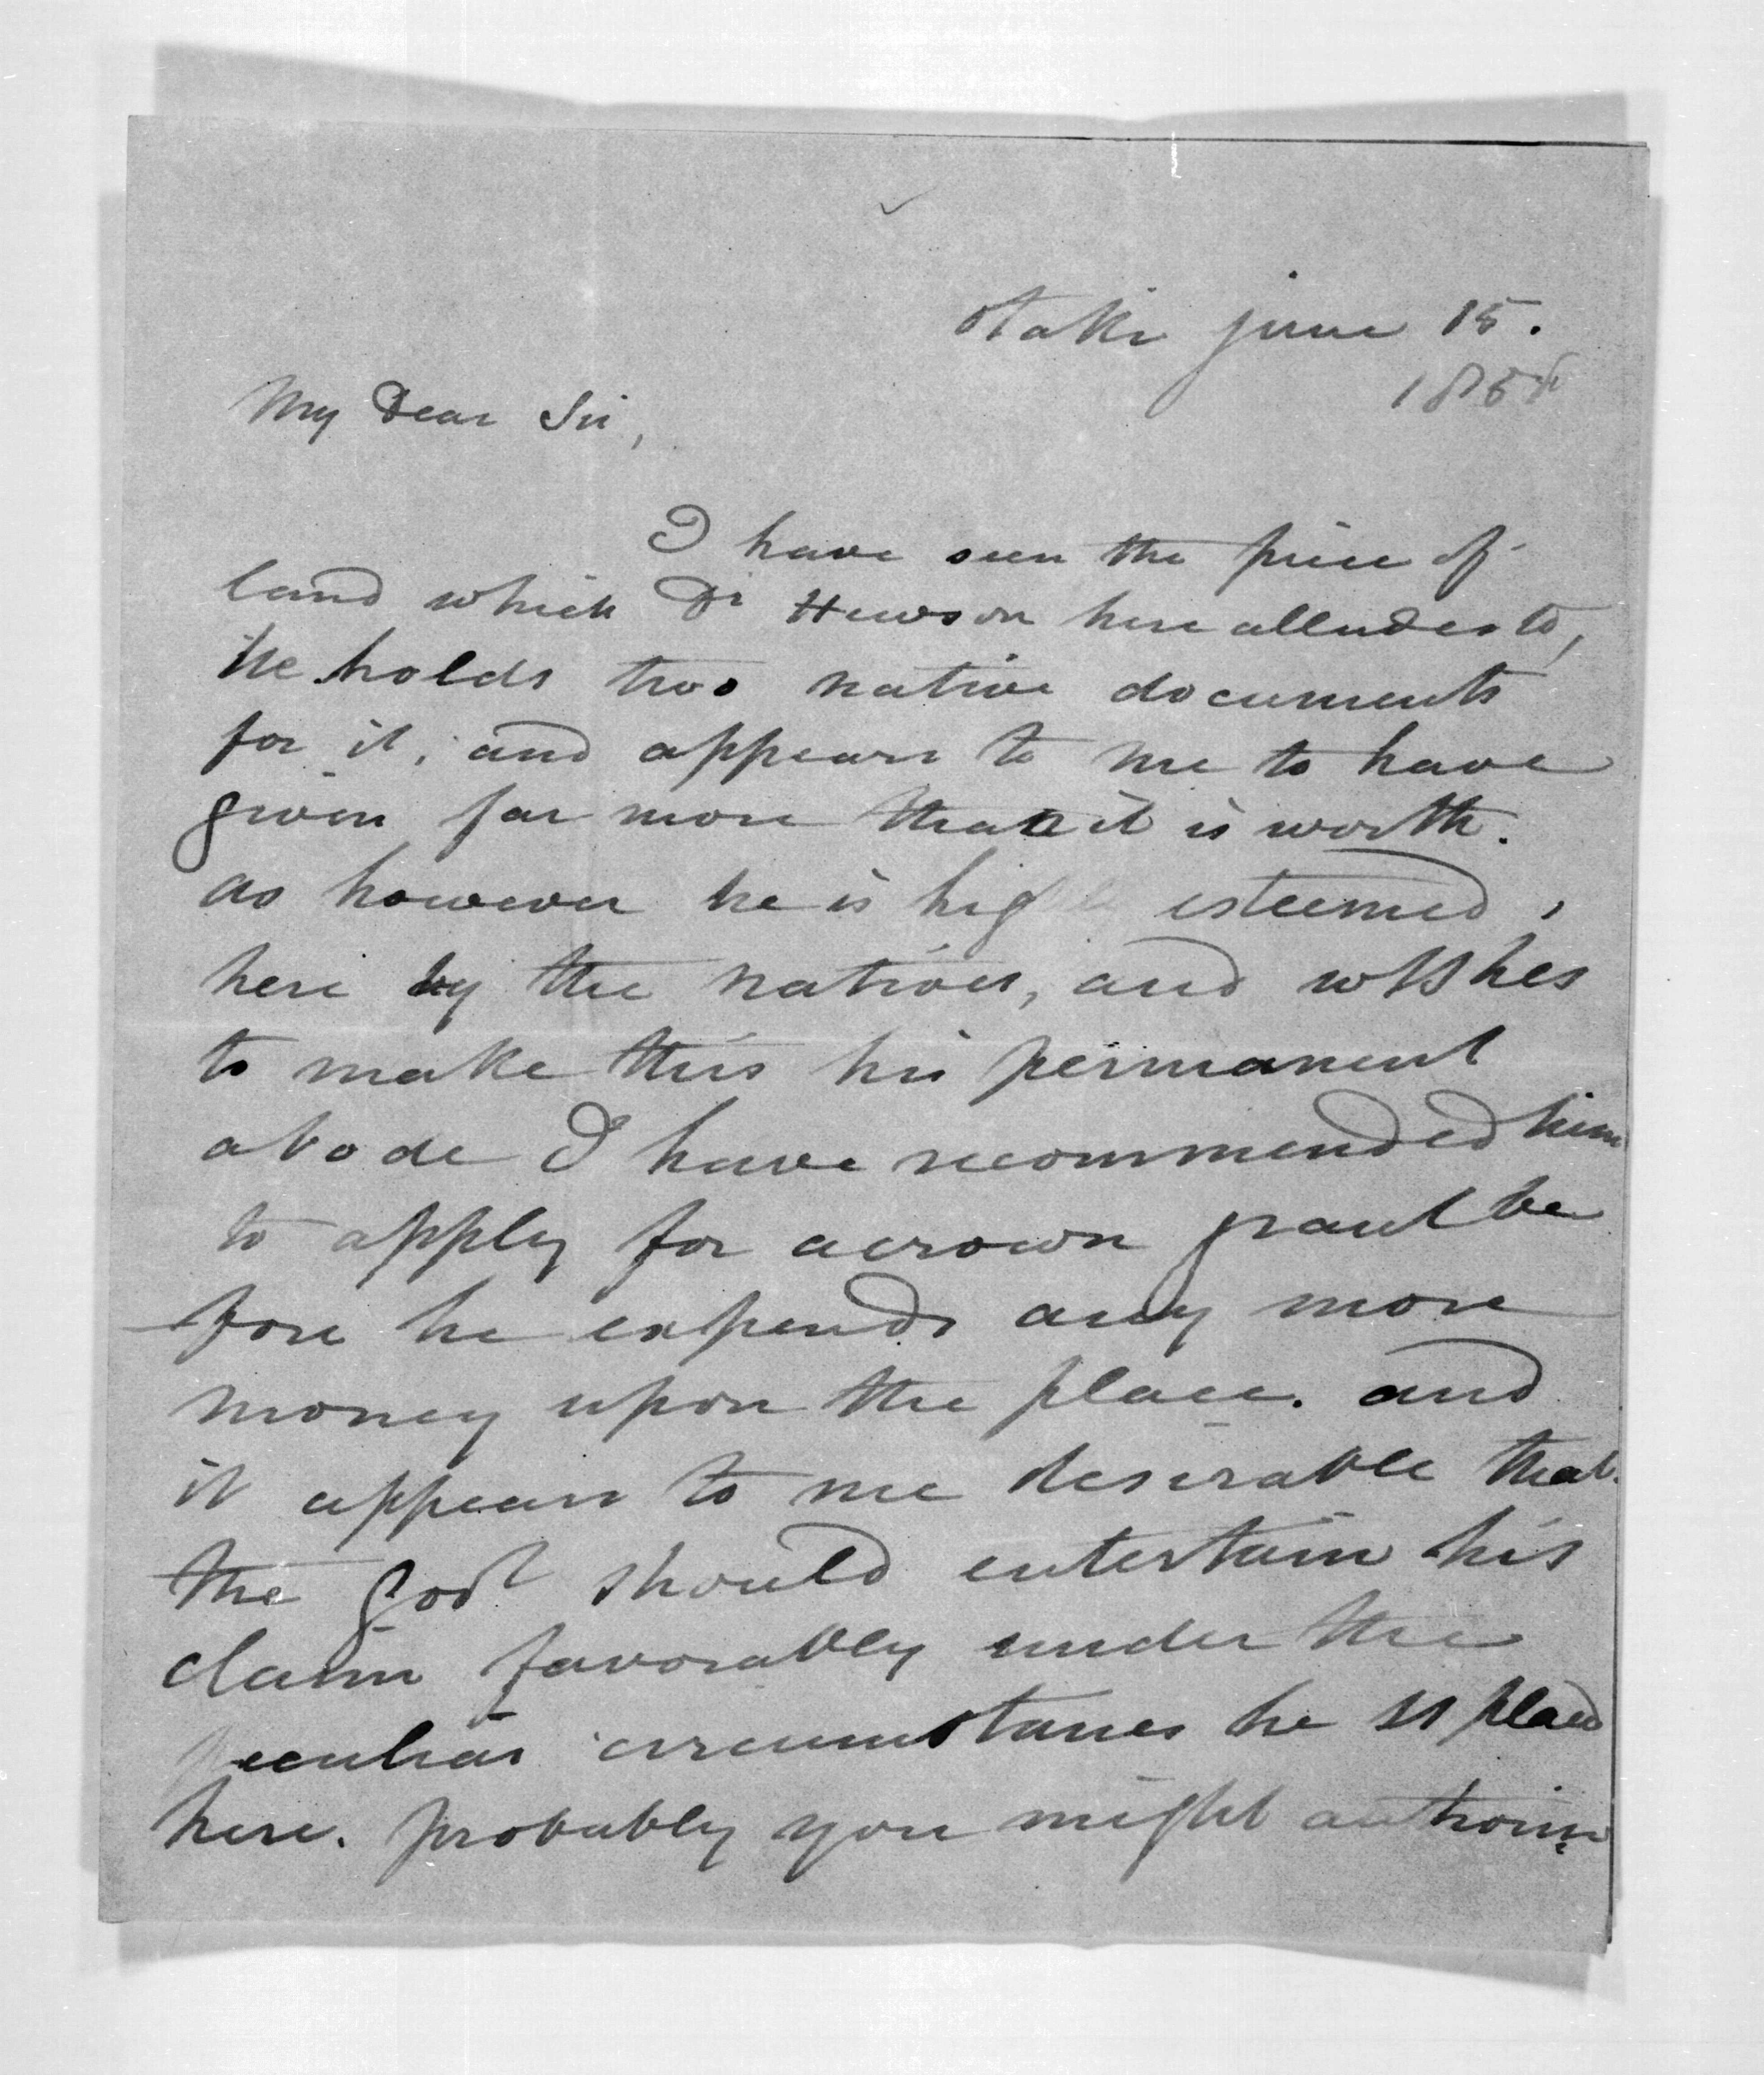 Otaki june 15.
185
My Dear Sir,
I have seen the piece of
land which Dr Hewson here alludes to,
He holds two native documents
for it, and appears to me to have
given far more than it is worth.
as however he is highly esteemed,
here by the natives, and wishes
to make this his permanent
abode I have recommended him
to apply for a crown grant be
fore he expends any more
money upon the place. and
it appears to me desirable that
the Govt should entertain his
claim favorably under the
peculiar circumstances he is placed
here. probably you might authorize